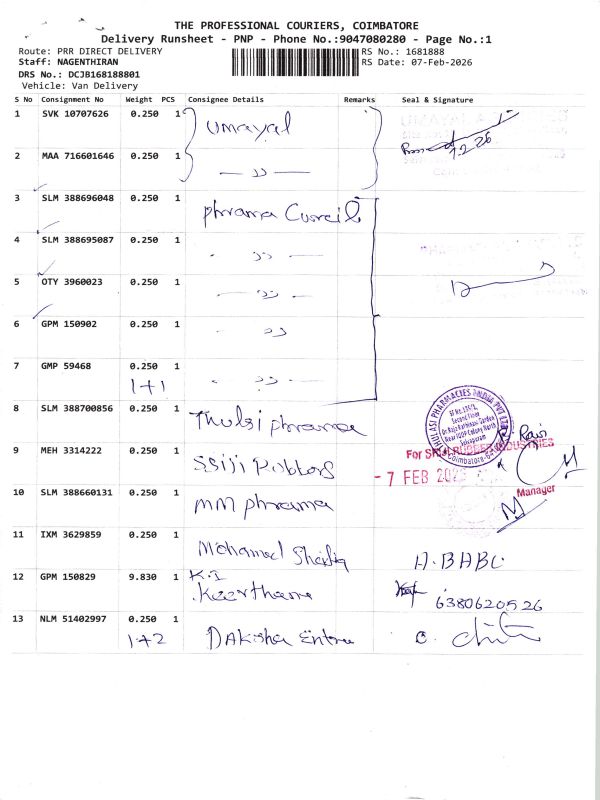 THE PROFESSIONAL COURIERS, COIMBATORE
Delivery Runsheet - PNP - Phone No.:9047080280 - Page No.:1
Route: PRR DIRECT DELIVERY
RS No.: 1681888
Staff: NAGENTHIRAN
RS Date: 07-Feb-2026
DRS No.: DCJB168188801
Vehicle: Van Delivery
S No Consignment No Weight PCS Consignee Details Remarks Seal & Signature
1 SVK 10707626 0.250 1 Umayal
7.2.26
2 MAA 716601646 0.250 1 — ,, —
3 SLM 388696048 0.250 1 phrama Curcil
4 SLM 388695087 0.250 1 - ,, —
5 OTY 3960023 0.250 1 — ,, —
6 GPM 150902 0.250 1 - ,,
7 GMP 59468 0.250 1 - ,, —
1+1
8 SLM 388700856 0.250 1 Thulsi phrama
THULASI PHARMACIES INDIA PVT LTD
Second Floor
Coimbatore
Ravi
9 MEH 3314222 0.250 1 SSiji Rubbers
For INDUSTRIES
- 7 FEB
Manager
10 SLM 388660131 0.250 1 MM phrama
11 IXM 3629859 0.250 1 Mohamed Shafiq H.BABU
12 GPM 150829 9.830 1 K.I Keerthana
6380620526
13 NLM 51402997 0.250 1 DAKsha Entre
1+2